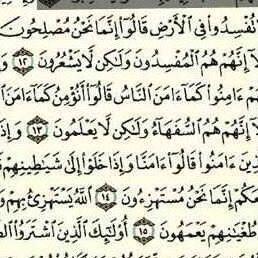 تُفْسِدُوا۟ فِى ٱلْأَرْضِ قَالُوٓا۟ إِنَّمَا نَحْنُ مُصْلِحُونَ
إِنَّهُمْ هُمُ ٱلْمُفْسِدُونَ وَلَٰكِن لَّا يَشْعُرُونَ ١٢
ءَامِنُوا۟ كَمَآ ءَامَنَ ٱلنَّاسُ قَالُوٓا۟ أَنُؤْمِنُ كَمَآ ءَامَنَ
إِنَّهُمْ هُمُ ٱلسُّفَهَآءُ وَلَٰكِن لَّا يَعْلَمُونَ ١٣ وَإِذَا
ءَامَنُوا۟ قَالُوٓا۟ ءَامَنَّا وَإِذَا خَلَوْا۟ إِلَىٰ شَيَٰطِينِهِمْ
إِنَّمَا نَحْنُ مُسْتَهْزِءُونَ ١٤ ٱللَّهُ يَسْتَهْزِئُ بِهِمْ
طُغْيَٰنِهِمْ يَعْمَهُونَ ١٥ أُو۟لَٰٓئِكَ ٱلَّذِينَ ٱشْتَرَوُا۟